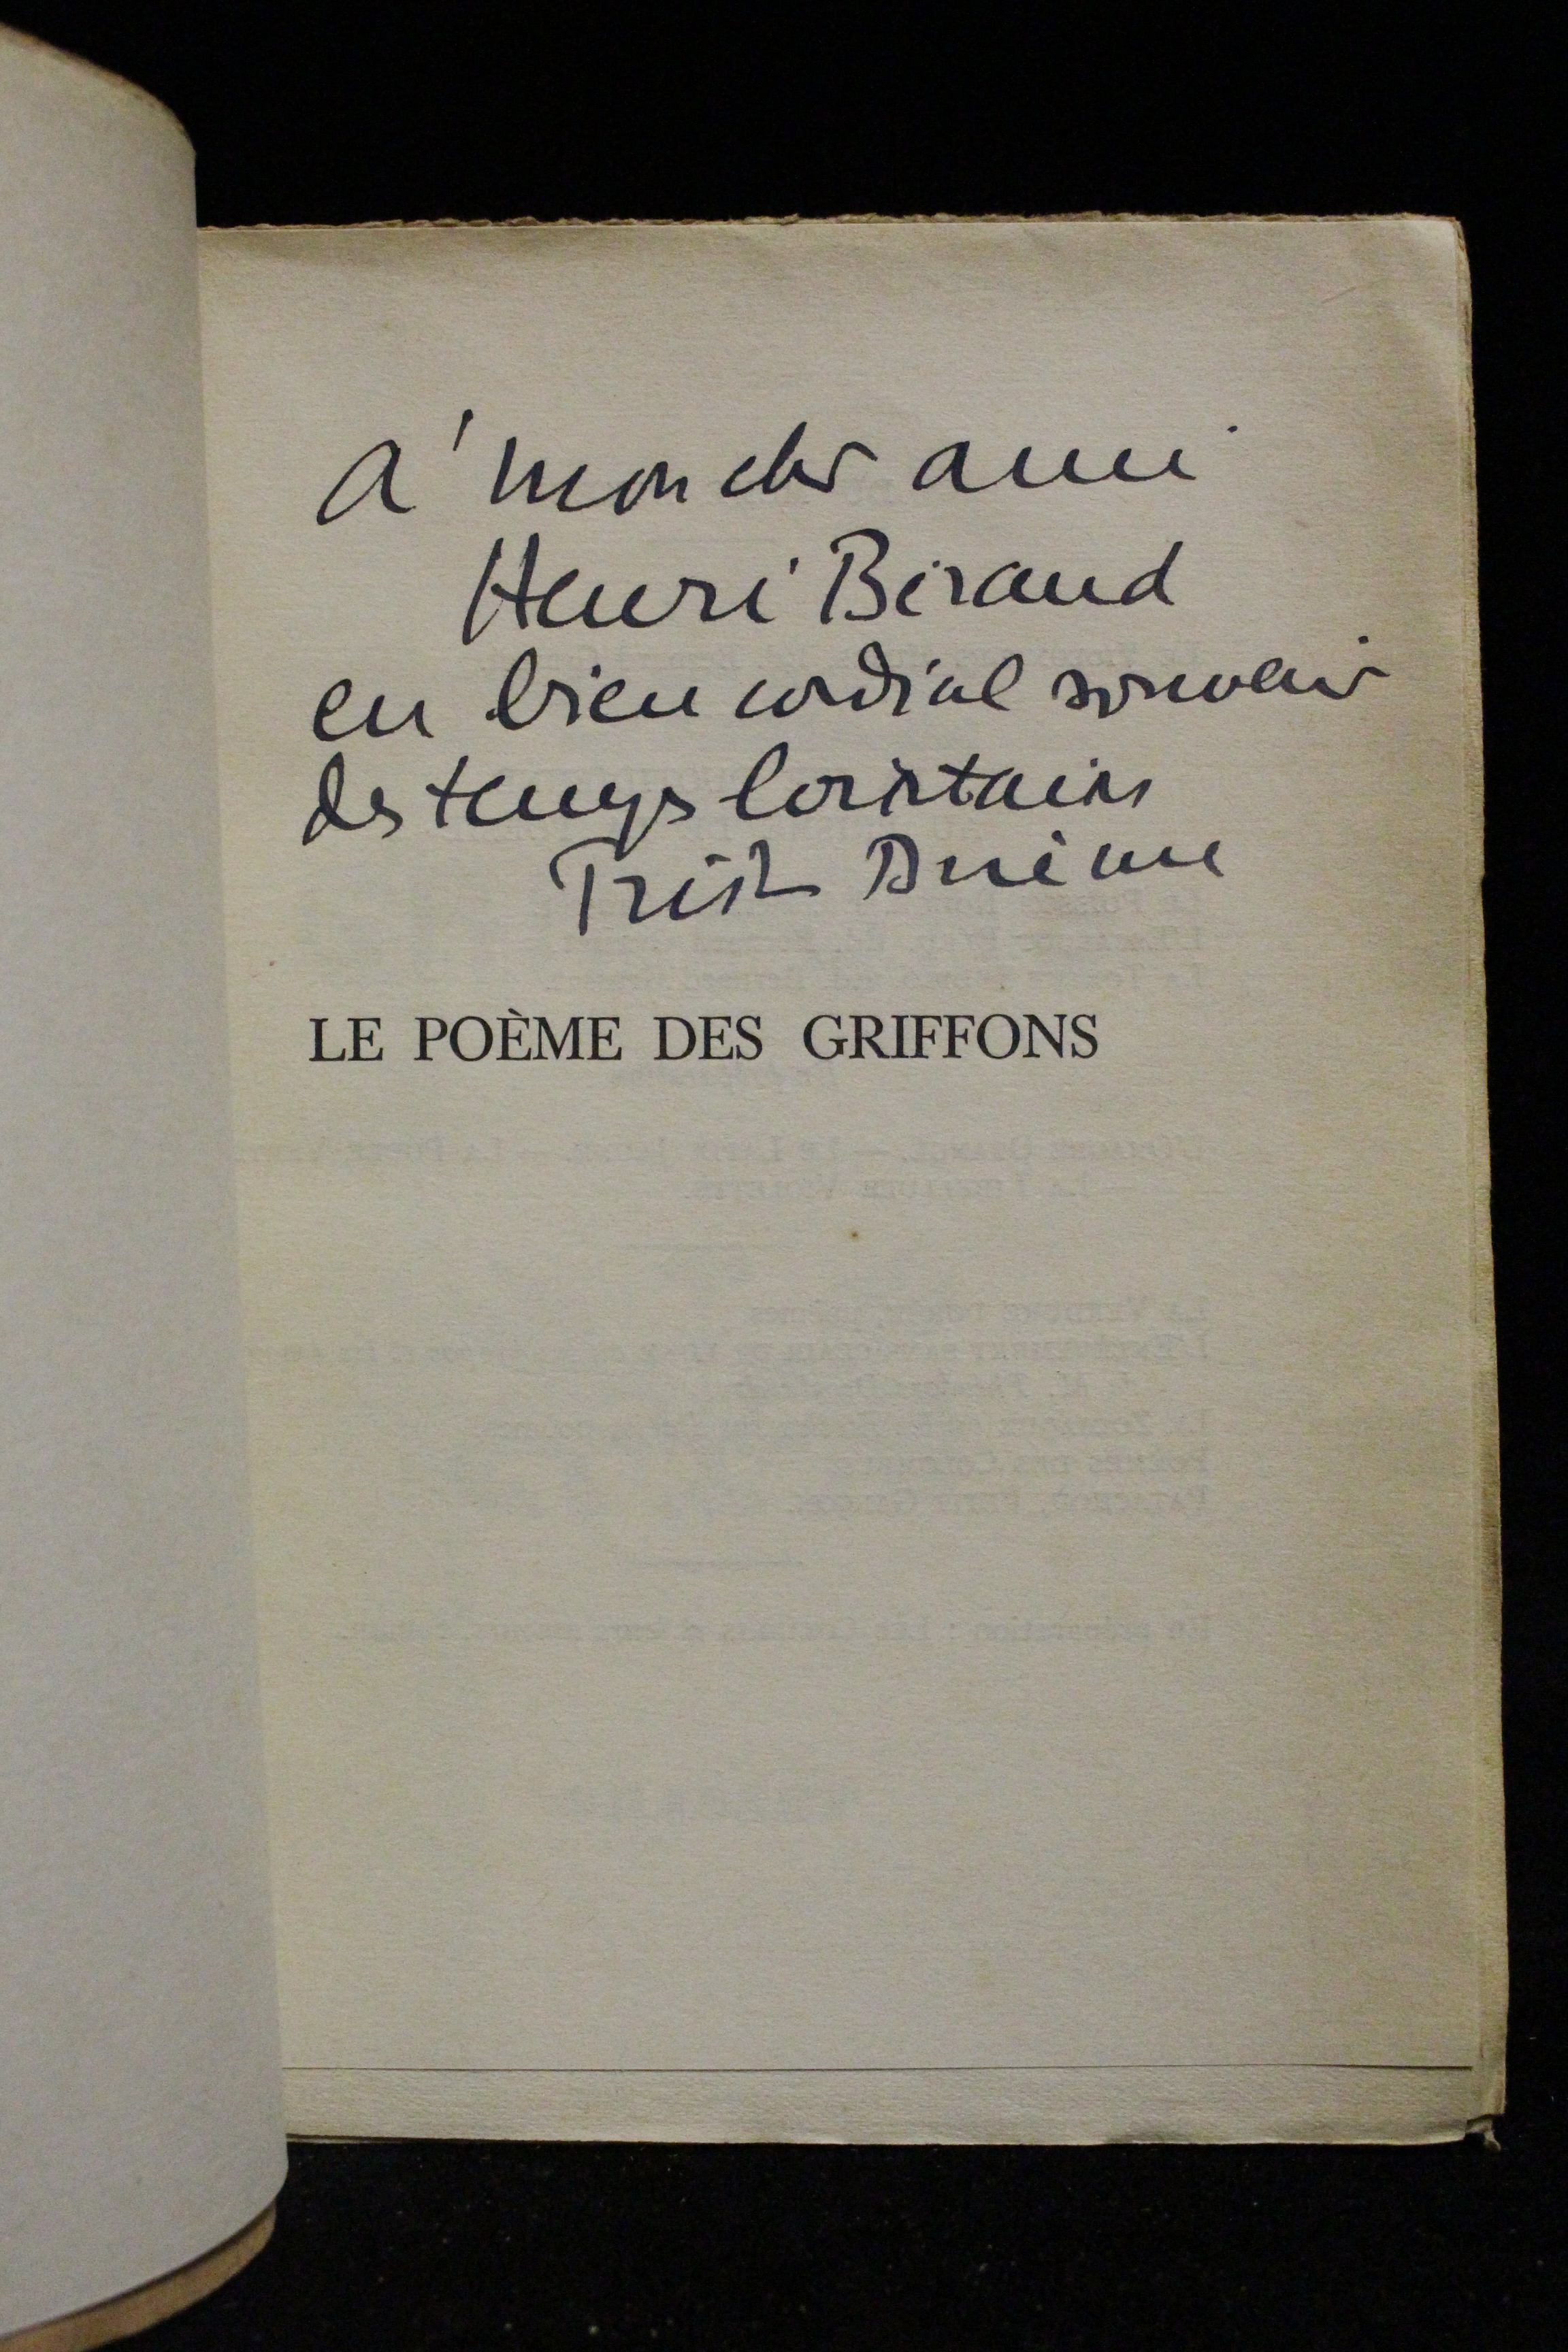 A' mon cher ami
Henri Béraud
en bien cordial souvenir
des temps lointains
Tristan Derème
LE POÈME DES GRIFFONS